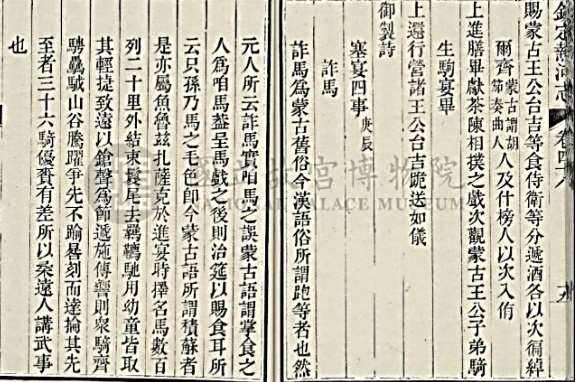 欽定熱河志
賜蒙古王公台吉等食侍衛等分遞酒各以次徧綽
爾齊蒙古謂胡節奏曲人人及什榜人以次入侑
上進膳畢獻茶陳相撲之戲次觀蒙古王公子弟騎
生駒宴畢
上還行營諸王公台吉跪送如儀
御製詩
塞宴四事 庚辰
詐馬
詐馬為蒙古舊俗今漢語俗所謂跑等者也然
元人所云詐馬實咱馬之誤蒙古語謂掌食之
人為咱馬蓋呈馬戲之後則治筵以賜食耳所
云只孫乃馬之毛色即今蒙古語所謂積蘇者
是亦屬魚魯茲扎薩克於進宴時擇名馬數百
列二十里外結束鬃尾去羈韉馳用幼童皆取
其輕捷致遠以鎗聲為節遞施傳響則眾騎齊
騁驫駥山谷騰躍爭先不踰晷刻而達掄其先
至者三十六騎優賚有差所以柔遠人講武事
也
國立故宮博物院
NATIONAL PALACE MUSEUM